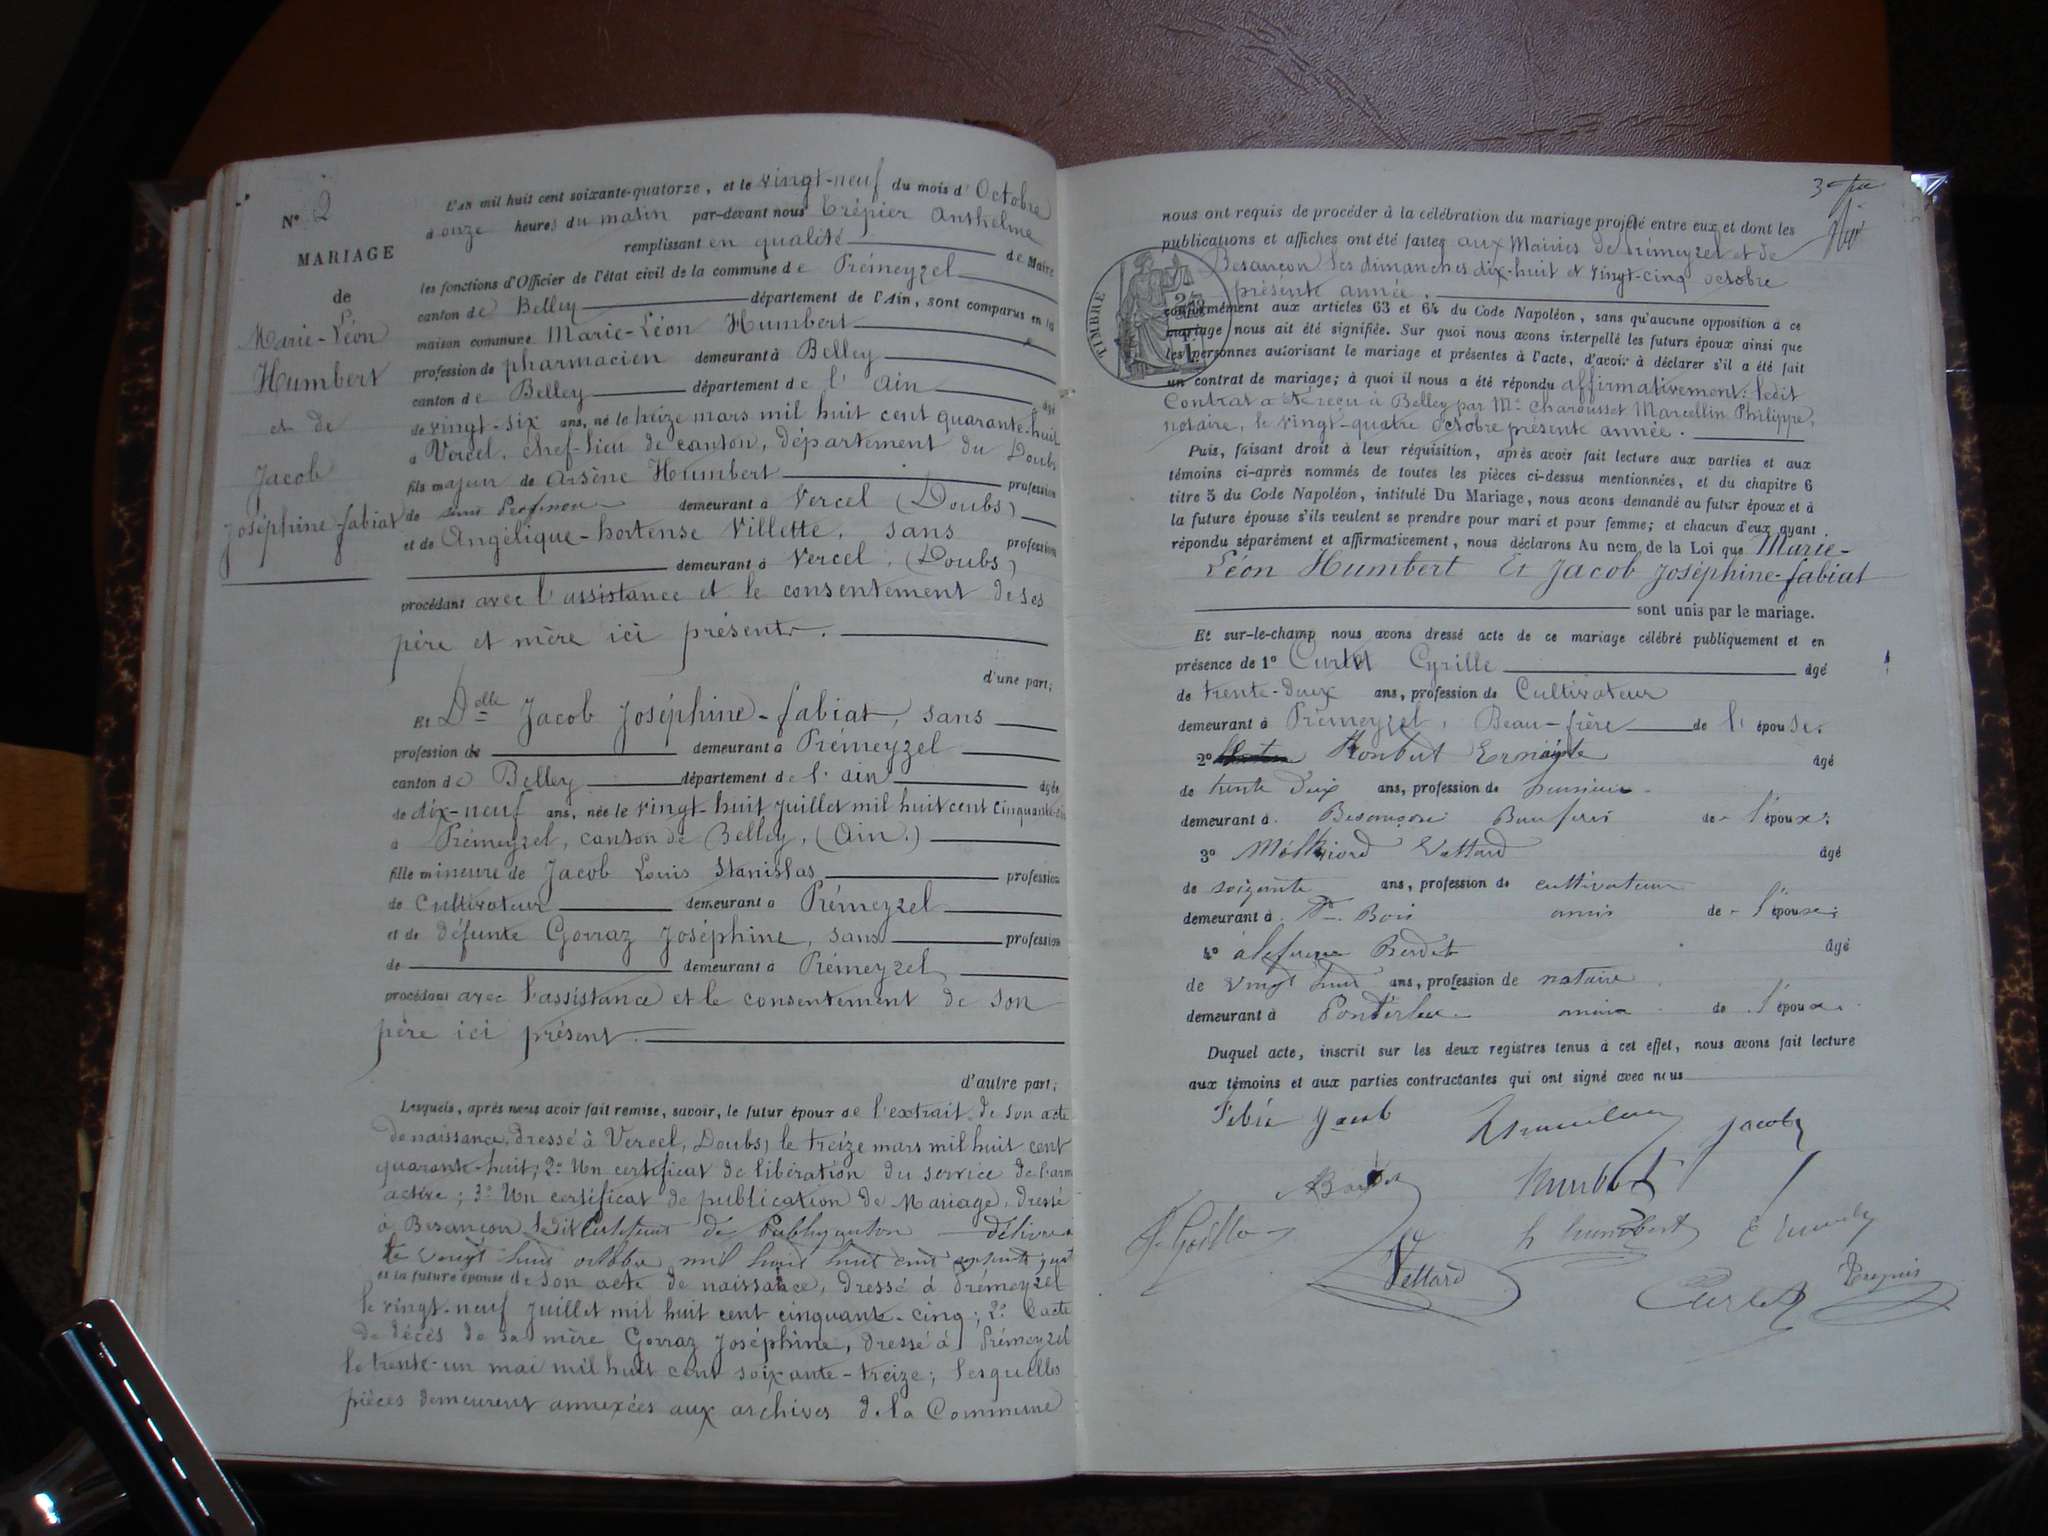 N° 2
MARIAGE
de
Marie-Léon
Humbert
et de
Jacob
Joséphine-fabiat
L'an mil huit cent soixante-quatorze, et le vingt-neuf du mois d'Octobre
à onze heures du matin par-devant nous Trépier Anthelme
remplissant en qualité de Maire
les fonctions d'Officier de l'état civil de la commune de Prémeyzel
canton de Belley département de l'Ain, sont comparus en la
maison commune Marie-Léon Humbert
profession de pharmacien demeurant à Belley
canton de Belley département de l'ain âgé
de vingt-six ans, né le treize mars mil huit cent quarante-huit
à Vercel, chef-lieu de canton, département du Doubs
fils majeur de Arsène Humbert profession
de sans Profession demeurant à Vercel (Doubs)
et de Angélique-hortense Villette, sans profession
demeurant à Vercel, (Doubs)
procédant avec l'assistance et le consentement de ses
père et mère ici présents.
d'une part;
Et Delle Jacob Joséphine-fabiat, sans
profession de demeurant à Prémeyzel
canton de Belley département de l'ain âgée
de dix-neuf ans, née le vingt-huit juillet mil huit cent cinquante-cinq
à Prémeyzel, canton de Belley, (Ain.)
fille mineure de Jacob Louis Stanislas profession
de Cultivateur demeurant à Prémeyzel
et de défunte Gorraz Joséphine, sans profession
de demeurant à Prémeyzel
procédant avec l'assistance et le consentement de son
père ici présent.
d'autre part;
Lesquels, après nous avoir fait remise, savoir, le futur époux de l'extrait de son acte
de naissance, dressé à Vercel, Doubs, le treize mars mil huit cent
quarante-huit; 2° Un certificat de libération du service de l'armée
active; 3° Un certificat de publication de Mariage, dressé
à Besançon, ledit Certificat de Publication délivré
le vingt huit octobre mil huit cent soixante quatre
et la future épouse de son acte de naissance, dressé à Prémeyzel
le vingt-neuf juillet mil huit cent cinquante-cinq; 2° l'acte
de décès de sa mère Gorraz Joséphine, dressé à Prémeyzel
le trente-un mai mil huit cent soixante-treize; lesquelles
pièces demeurent annexées aux archives de la Commune
3
nous ont requis de procéder à la célébration du mariage projeté entre eux et dont les
publications et affiches ont été faites aux Mairies de Prémeyzel et de
Besançon les dimanches dix-huit et vingt-cinq octobre
présente année.
TIMBRE
conformément aux articles 63 et 64 du Code Napoléon, sans qu'aucune opposition à ce
mariage nous ait été signifiée. Sur quoi nous avons interpellé les futurs époux ainsi que
les personnes autorisant le mariage et présentes à l'acte, d'avoir à déclarer s'il a été fait
un contrat de mariage; à quoi il nous a été répondu affirmativement: ledit
Contrat a été reçu à Belley par Me Charousset Marcellin Philippe,
notaire, le vingt-quatre octobre présente année.
Puis, faisant droit à leur réquisition, après avoir fait lecture aux parties et aux
témoins ci-après nommés de toutes les pièces ci-dessus mentionnées, et du chapitre 6
titre 5 du Code Napoléon, intitulé Du Mariage, nous avons demandé au futur époux et à
la future épouse s'ils veulent se prendre pour mari et pour femme; et chacun d'eux ayant
répondu séparément et affirmativement, nous déclarons Au nom de la Loi que Marie-
Léon Humbert Et Jacob Joséphine-fabiat
sont unis par le mariage.
Et sur-le-champ nous avons dressé acte de ce mariage célébré publiquement et en
présence de 1° Curtet Cyrille âgé
de trente-deux ans, profession de Cultivateur
demeurant à Prémeyzel, Beau-frère de l'épouse;
2° Humbert âgé
de trente deux ans, profession de
demeurant à Besançon de l'époux;
3° Vettard âgé
de soixante ans, profession de cultivateur
demeurant à Bois amis de l'épouse;
4° Berdet âgé
de vingt huit ans, profession de notaire
demeurant à amis de l'époux.
Duquel acte, inscrit sur les deux registres tenus à cet effet, nous avons fait lecture
aux témoins et aux parties contractantes qui ont signé avec nous
Jacob Jacob
Humbert
h humbert
Vettard Curtet Trepier